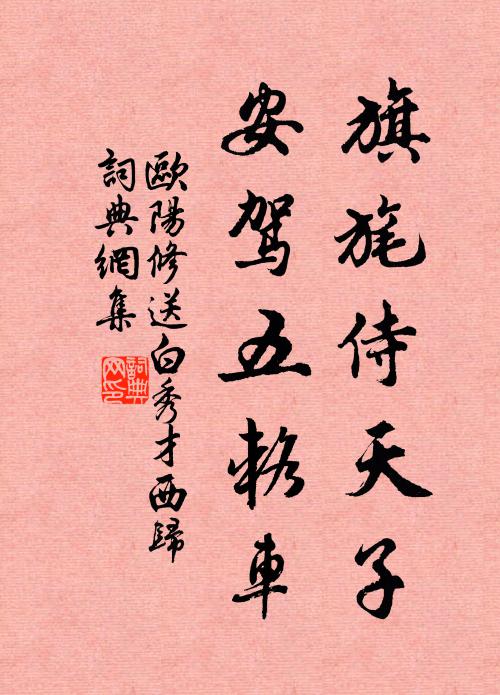 旗旄侍天子
安駕五輅車
歐陽修送白秀才西歸
詞典網集
詞典
网印